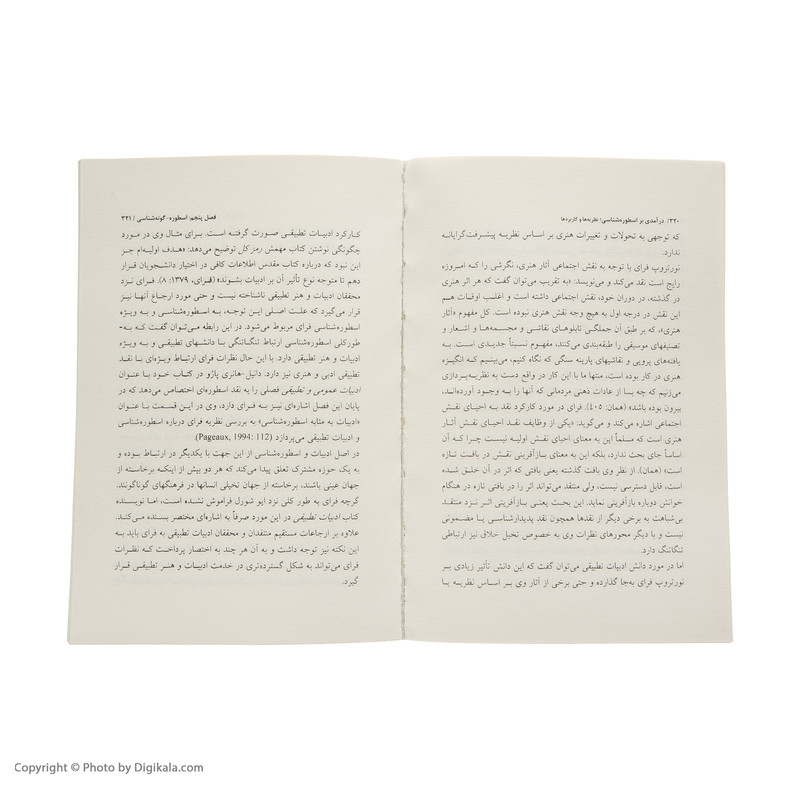 ۳۲۰/ درآمدی بر اسطوره‌شناسی: نظریه‌ها و کاربردها
که توجهی به تحولات و تغییرات هنری بر اساس نظریه پیشرفت‌گرایانه
ندارد.
نورتروپ فرای با توجه به نقش اجتماعی آثار هنری، نگرشی را که امروزه
رایج است نقد می‌کند و می‌نویسد: «به تقریب می‌توان گفت که هر اثر هنری
در گذشته، در دوران خود، نقش اجتماعی داشته است و اغلب اوقات هم
این نقش در درجه اول به هیچ وجه نقش هنری نبوده است. کل مفهوم «آثار
هنری»، که بر طبق آن جملگی تابلوهای نقاشی و مجسمه‌ها و اشعار و
تصنیفهای موسیقی را طبقه‌بندی می‌کنند، مفهوم نسبتاً جدیدی است. به
یافته‌های پرویی و نقاشیهای پارینه سنگی که نگاه کنیم، می‌بینیم که انگیزه
هنری در کار بوده است، منتها ما با این کار در واقع دست به نظریه‌پردازی
می‌زنیم که چه بسا از عادات ذهنی مردمانی که آنها را به وجود آورده‌اند،
بیرون بوده باشد» (همان: ٤٠٥). فرای در مورد کارکرد نقد به احیای نقش
اجتماعی اشاره می‌کند و می‌گوید: «یکی از وظایف نقد احیای نقش آثار
هنری است که مسلماً این به معنای احیای نقش اولیه نیست چرا که آن
اساساً جای بحث ندارد، بلکه این به معنای بازآفرینی نقش در بافت تازه
است» (همان). از نظر وی بافت گذشته یعنی بافتی که اثر در آن خلق شده
است، قابل دسترسی نیست، ولی منتقد می‌تواند اثر را در بافتی تازه در هنگام
خوانش دوباره بازآفرینی نماید. این بحث یعنی بازآفرینی اثر نزد منتقد
بی‌شباهت به برخی دیگر از نقدها همچون نقد پدیدارشناسی یا مضمونی
نیست و با دیگر محورهای نظرات وی به خصوص تخیل خلاق نیز ارتباطی
تنگاتنگ دارد.
اما در مورد دانش ادبیات تطبیقی می‌توان گفت که این دانش تأثیر زیادی بر
نورتروپ فرای به‌جا گذارده و حتی برخی از آثار وی بر اساس نظریه یا
فصل پنجم: اسطوره-گونه‌شناسی / ۳۲۱
کارکرد ادبیات تطبیقی صورت گرفته است. برای مثال وی در مورد
چگونگی نوشتن کتاب مهمش رمز کل توضیح می‌دهد: «هدف اولیه‌ام جز
این نبود که درباره کتاب مقدس اطلاعات کافی در اختیار دانشجویان قرار
دهم تا متوجه نوع تأثیر آن بر ادبیات بشوند» (فرای، ۱۳۷۹: ۸). فرای نزد
محققان ادبیات و هنر تطبیقی ناشناخته نیست و حتی مورد ارجاع آنها نیز
قرار می‌گیرد که علت اصلی این توجه، به اسطوره‌شناسی و به ویژه
اسطوره‌شناسی فرای مربوط می‌شود. در این رابطه می‌توان گفت که به-
طورکلی اسطوره‌شناسی ارتباط تنگاتنگی با دانشهای تطبیقی و به ویژه
ادبیات و هنر تطبیقی دارد. با این حال نظرات فرای ارتباط ویژه‌ای با نقد
تطبیقی ادبی و هنری نیز دارد. دانیل-هانری پاژو در کتاب خود با عنوان
ادبیات عمومی و تطبیقی فصلی را به نقد اسطوره‌ای اختصاص می‌دهد که در
پایان این فصل اشاره‌ای نیز به فرای دارد، وی در این قسمت با عنوان
«ادبیات به مثابه اسطوره‌شناسی» به بررسی نظریه فرای درباره «اسطوره‌شناسی
و ادبیات تطبیقی می‌پردازد (Pageaux, 1994: 112).
در اصل ادبیات و اسطوره‌شناسی از این جهت با یکدیگر در ارتباط بوده و
به یک حوزه مشترک تعلق پیدا می‌کند که هر دو بیش از اینکه برخاسته از
جهان عینی باشند، برخاسته از جهان تخیلی انسانها در فرهنگهای گوناگونند.
گرچه فرای به طور کلی نزد ایو شورل فراموش نشده است، اما نویسنده
کتاب ادبیات تطبیقی در این مورد صرفاً به اشاره‌ای مختصر بسنده می‌کند.
علاوه بر ارجاعات مستقیم منتقدان و محققان ادبیات تطبیقی به فرای باید به
این نکته نیز توجه داشت و به آن هر چند به اختصار پرداخت که نظرات
فرای می‌تواند به شکل گسترده‌تری در خدمت ادبیات و هنر تطبیقی قرار
گیرد.
Copyright © Photo by Digikala.com